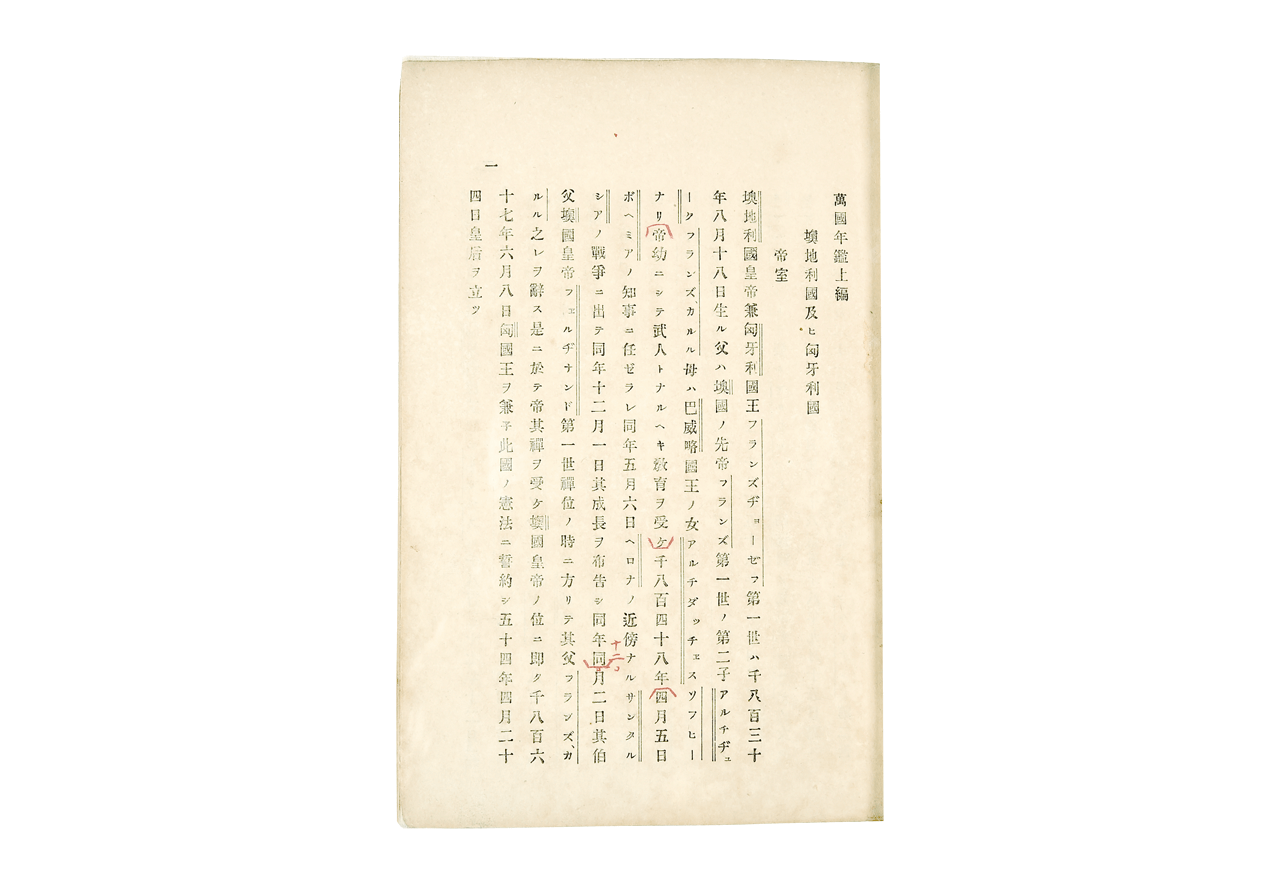 萬國年鑑上編
墺地利國及ヒ匈牙利國
帝室
墺地利國皇帝兼匈牙利國王フランズヂョーゼフ第一世ハ千八百三十
年八月十八日生ル父ハ墺國ノ先帝フランズ第一世ノ第二子アルチヂュ
ークフランズ、カルル母ハ巴威略國王ノ女アルチダッチェスソフヒー
ナリ帝幼ニシテ武人トナルヘキ敎育ヲ受ケ千八百四十八年四月五日
ボヘミアノ知事ニ任ゼラレ同年五月六日ヘロナノ近傍ナルサンタル
シアノ戰爭ニ出テ同年十二月一日其成長ヲ布吿シ同年同月二日其伯
十二
父墺國皇帝フェルヂナンド第一世禪位ノ時ニ方リテ其父フランズ、カ
ルル之レヲ辭ス是ニ於テ帝其禪ヲ受ケ墺國皇帝ノ位ニ卽ク千八百六
十七年六月八日匈國王ヲ兼子此國ノ憲法ニ誓約シ五十四年四月二十
四日皇后ヲ立ツ
一